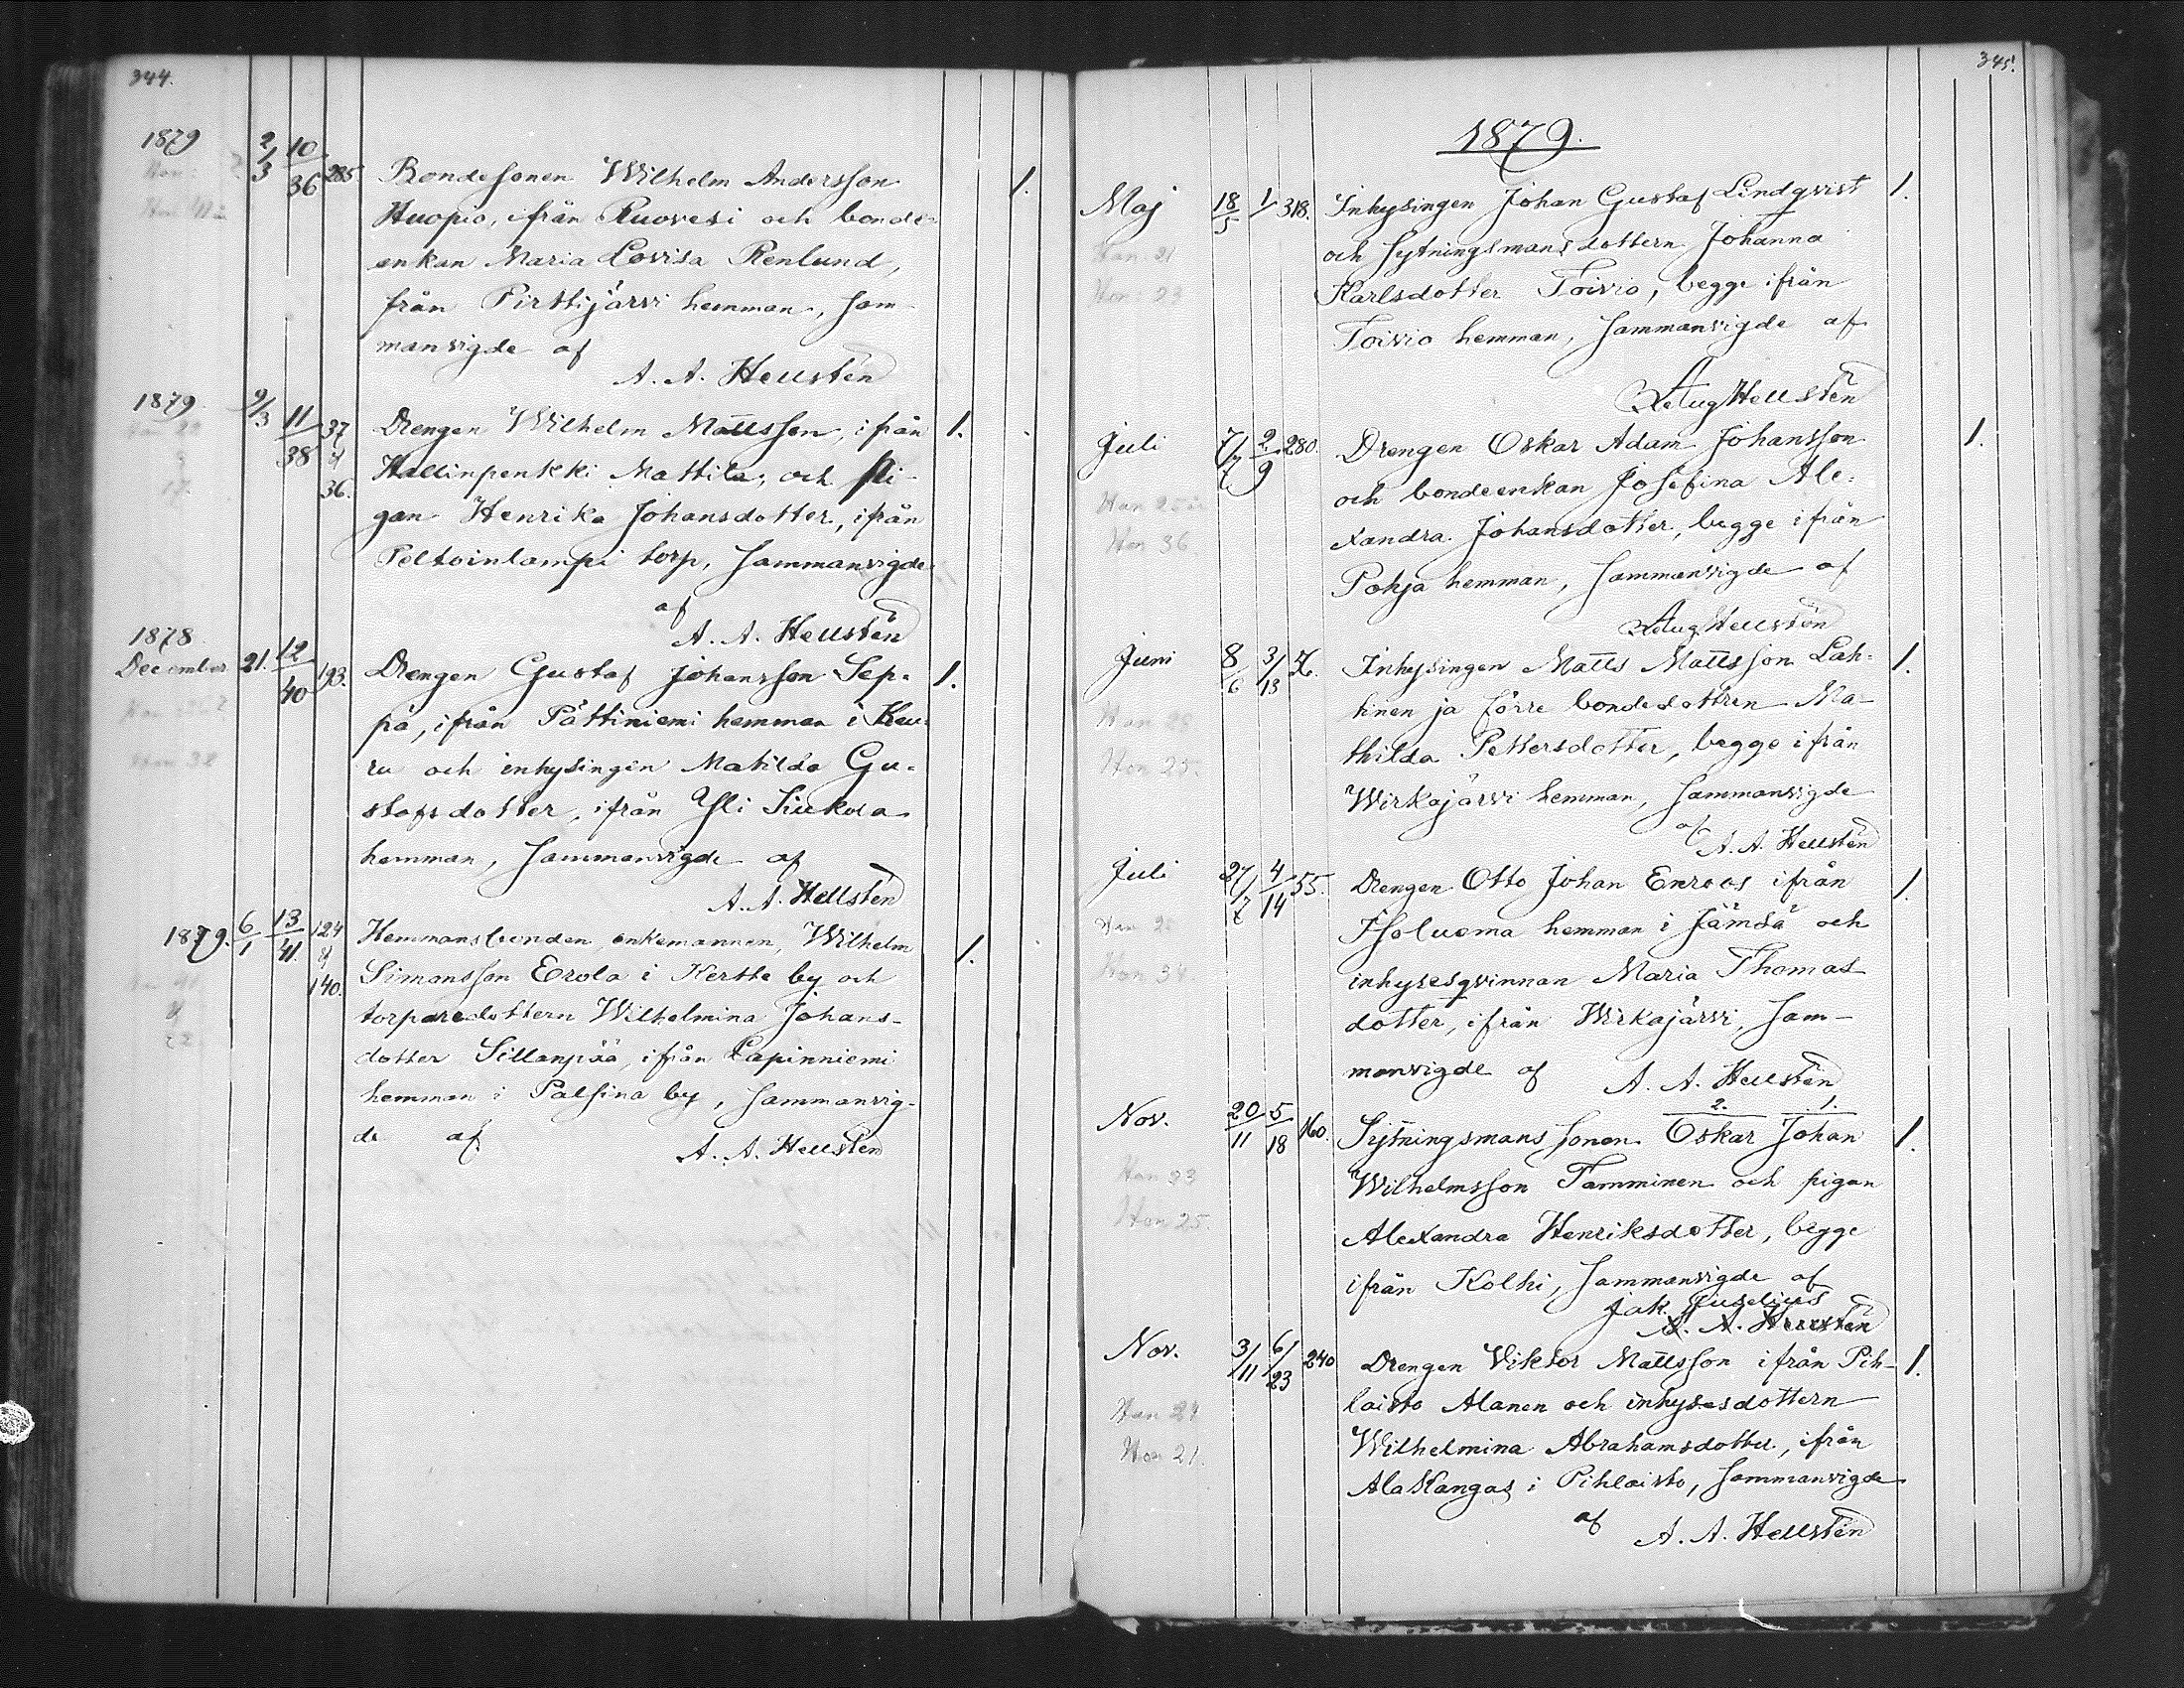 344.
1879 2/3 10/36 285. Bondesonen Wilhelm Andersson 1.
Huopio, ifrån Ruovesi och bonde-
enkan Maria Lovisa Renlund,
från Pirttijärvi hemman, sam-
manvigde af
A. A. Hellsten
1879. 9/3 11/38 37 & 36. Drengen Wilhelm Mattsson, ifrån 1.
Hallinpenkki Mattila, och pi-
gan Henrika Johansdotter, ifrån
Peltoinlampi torp, sammanvigde
af
A. A. Hellsten
1878
December 21. 12/40 193. Drengen Gustaf Johansson Sep- 1.
pä, ifrån Pättiniemi hemman i Keu-
ru och inhysingen Matilda Gu-
stafsdotter, ifrån Yli Siukola
hemman, sammanvigde af
A. A. Hellsten
1879. 6/1 13/41. 124 & 140. Hemmansbonden, enkemannen, Wilhelm 1.
Simonsson Erola i Kertte by och
torparedottern Wilhelmina Johans-
dotter Sillanpää, ifrån Lapinniemi
hemman i Palsina by, sammanvig-
de af
A. A. Hellsten
345.
1879.
Maj 18/5 1/ 318. Inhysingen Johan Gustaf Lindqvist 1.
Han 21 och sytningsmansdottern Johanna
Hon 23 Karlsdotter Toivio, begge ifrån
Toivio hemman, sammanvigde af
Aug Hellsten
Juli 7/7 2/9 280. Drengen Oskar Adam Johansson 1.
Han 25 år och bondeenkan Josefina Ale-
Hon 36 xandra Johansdotter, begge ifrån
Pohja hemman, sammanvigde af
Aug Hellsten
Juni 8/6 3/13 Inhysingen Matts Mattsson Lah- 1.
Han tinen ja förre bondedottren Ma-
Hon 25. thilda Pettersdotter, begge ifrån
Wirkajärvi hemman, sammanvigde
af A. A. Hellsten
Juli 27/7 4/14 55. Drengen Otto Johan Enroos ifrån 1.
Han Isoluoma hemman i Jämsä och
Hon 34 inhysesqvinnan Maria Thomas-
dotter, ifrån Wirkajärvi, sam-
manvigde af A. A. Hellsten
2. 1.
Nov. 20/11 5/18 160. Sytningsmans sonen Oskar Johan 1.
Han 23 Wilhelmsson Tamminen och pigan
Hon 25. Alexandra Henriksdotter, begge
ifrån Kolhi, sammanvigde af
Jak. Juselius
A. A. Hellsten
Nov. 3/11 6/23 240 Drengen Viktor Mattsson ifrån Pih- 1.
Han 24 laisto Alanen och inhysesdottern
Hon 21. Wilhelmina Abrahamsdotter, ifrån
Ala Kangas i Pihlaisto, sammanvigde
af A. A. Hellsten